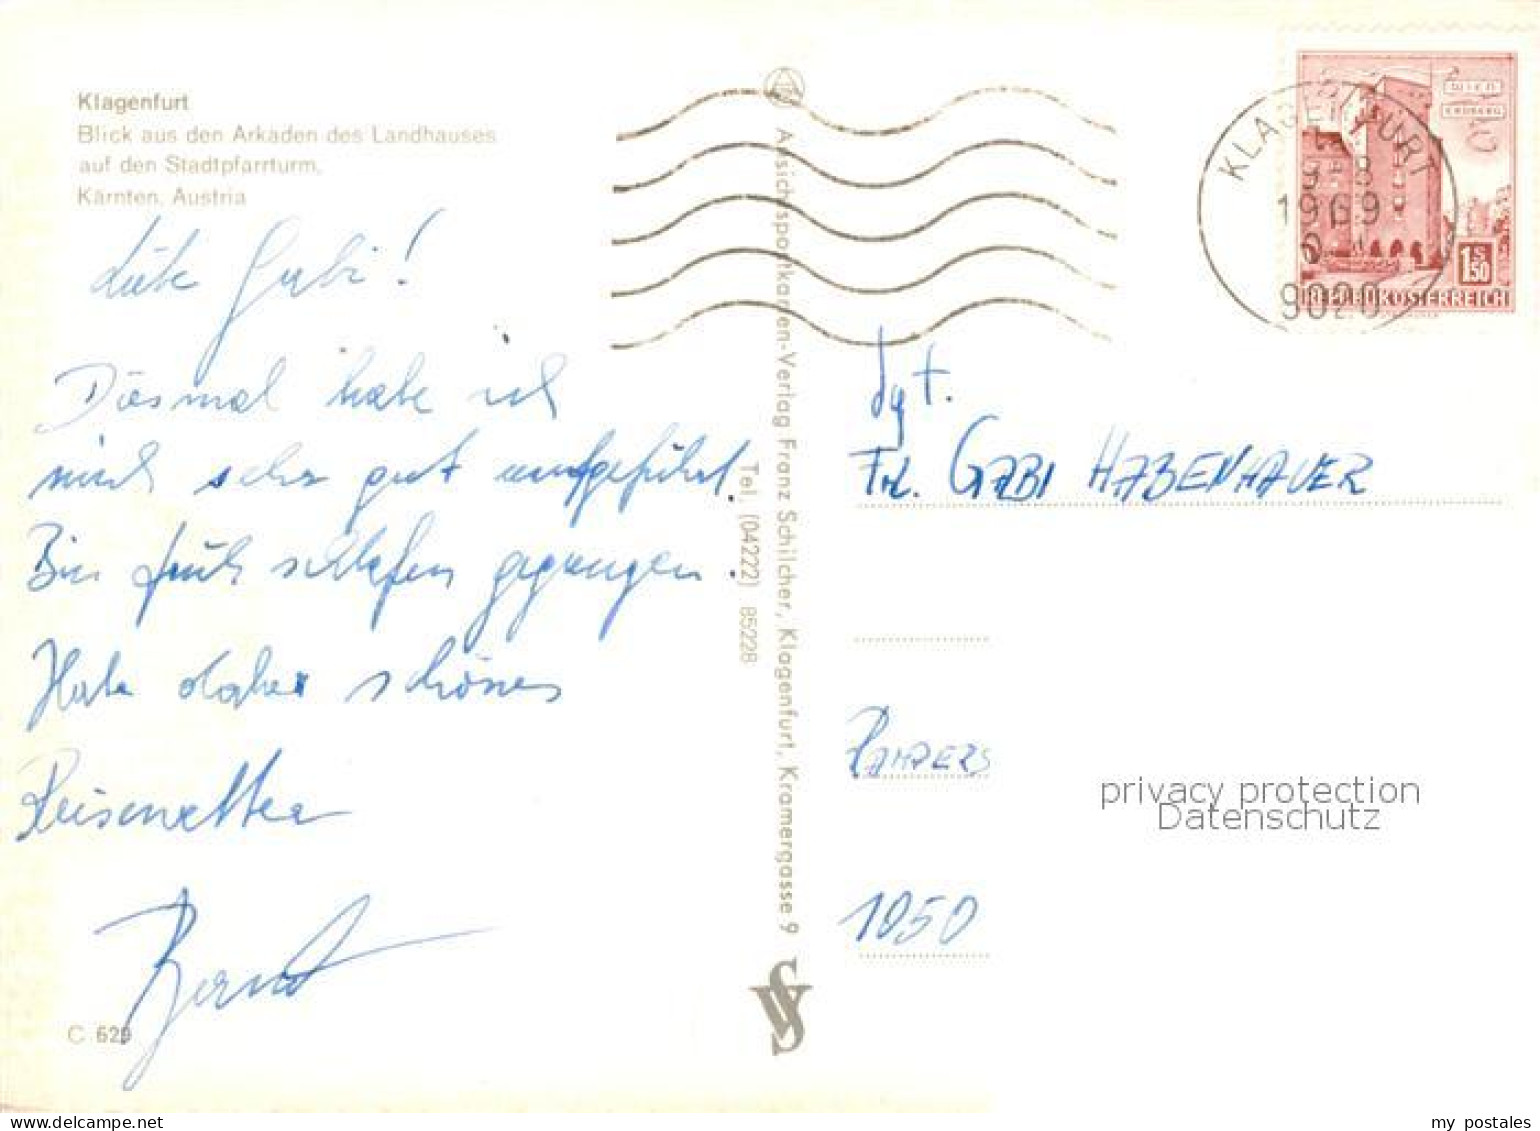 Klagenfurt
Blick aus den Arkaden des Landhauses
auf den Stadtpfarrturm.
Kärnten, Austria
Liebe Gabi!
Diesmal habe ich
mich sehr gut aufgeführt.
Bin früh schlafen gegangen.
Habe daher schönes
Reisewetter
Bernd
C 629
Ansichtspostkarten-Verlag Franz Schilcher, Klagenfurt, Kramergasse 9
Tel. (04222) 85228
VS
KLAGENFURT
1969
9020
WIEN
ERDBERG
S
1.50
REPUBLIK ÖSTERREICH
Frl. GABI HABENHAUER
1050
privacy protection
Datenschutz
my_postales